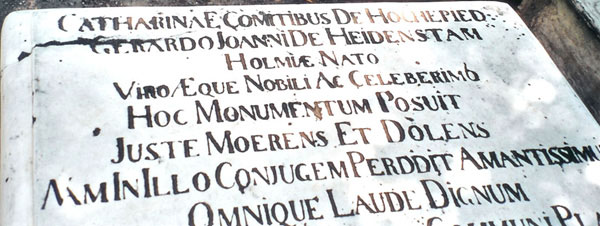 CATHARINAE COMITIBUS DE HOCHEPIED
GERARDO JOANNI DE HEIDENSTAM
HOLMIÆ NATO
VIRO ÆQUE NOBILI AC CELEBERIMO
HOC MONUMENTUM POSUIT
JUSTE MOERENS ET DOLENS
NAM IN ILLO CONJUGEM PERDDIT AMANTISSIMU
OMNIQUE LAUDE DIGNUM
COMMUNI